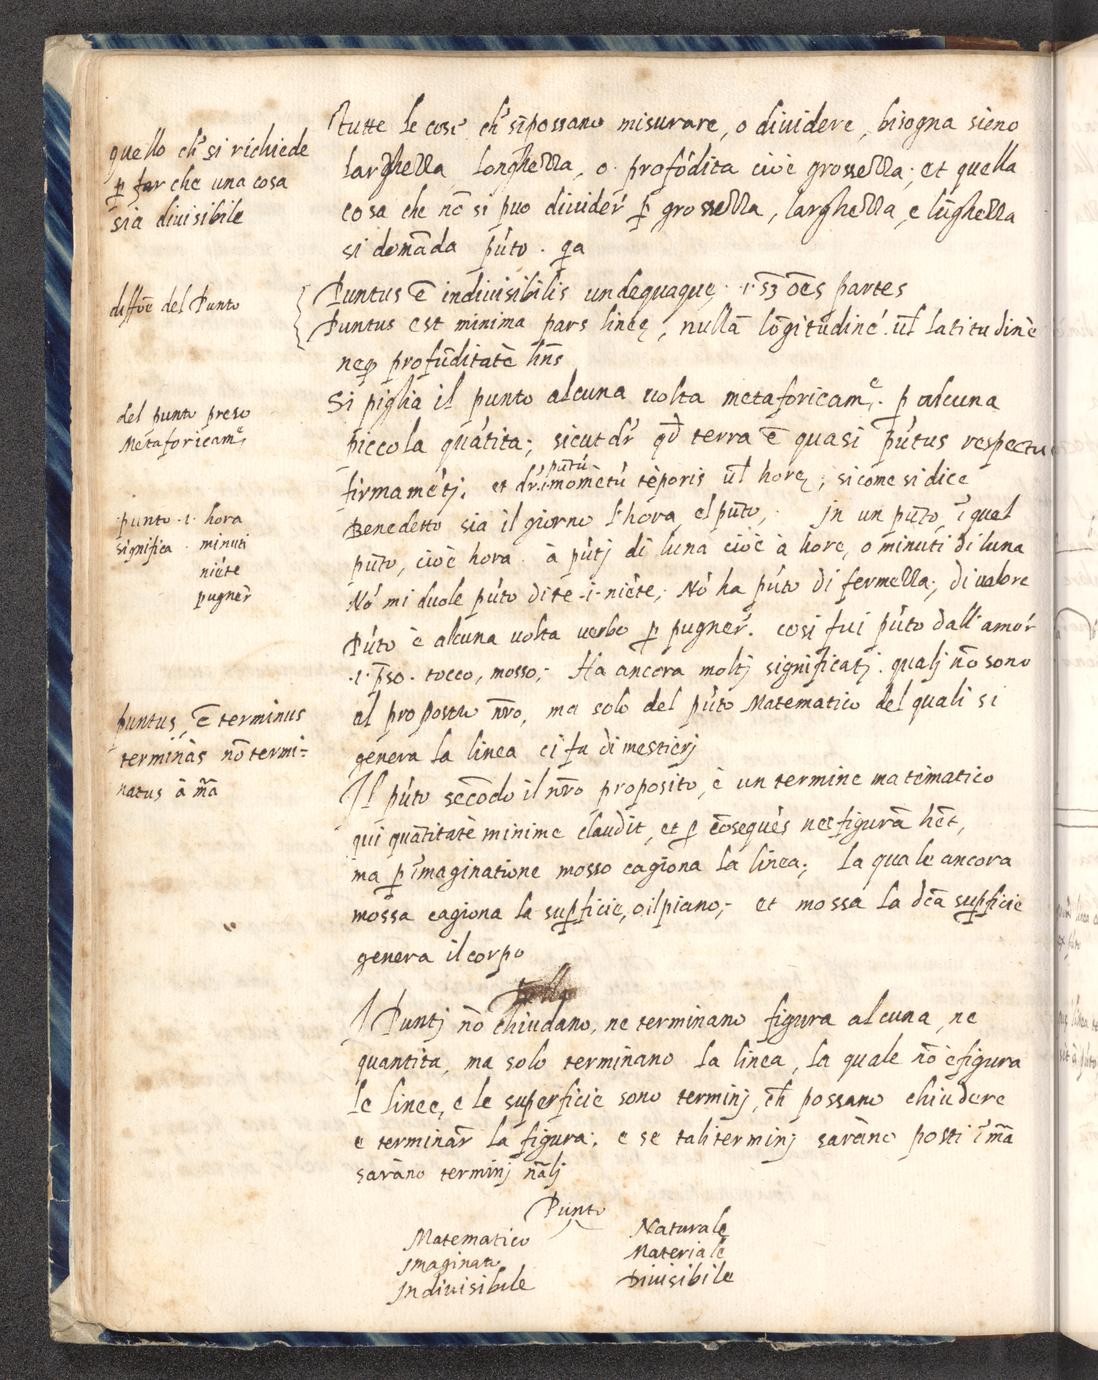 quello ch' si richiede
ꝑ far che una cosa
sia diuisibile
Tutte le cose ch' si possano misurare, o diuidere, bisogna sieno
larghezza longhezza, o profõdita cioè grossezza; et quella
cosa che nõ si puo diuider' ꝑ grossezza, larghezza, e lũghezza
si domãda pũto. qa
diffõe del Punto
Puntus ẽ indiuisibilis undequaque .i. scd3 oẽs partes
Puntus est minima pars lineę, nullã lõgitudinẽ ul̃ latitudinẽ
neqꝫ profũditatẽ hñs
del punto preso
Metaforicam.e
Si piglia il punto alcuna uolta metaforicam.e ꝑ alcuna
piccola quãtita; sicut dr̃ qd̃ terra ẽ quasi pũtus respectu
firmamẽtj; et dr̃ .i. momẽtũ tẽporis ul̃ horę; si come si dice
pũtũ
punto .i. hora
significa . minuti
niẽte
pugner̃
Benedetto sia il giorno l'hora, el pũto; jn un pũto, ĩ qual
pũto, cioè hora. à pũtj di luna cioè à hore, o minuti di luna
Nõ mi duole pũto di te .i. niẽte; Nõ ha pũto di fermezza; di ualore
Pũto è alcuna uolta uerbo ꝑ pugner̃. cosi fui pũto dall' amor̃
.i. p̃so. tocco, mosso; Ha ancora moltj significatj. qualj nõ sono
al proposito nr̃o, ma solo del pũto Matematico del quali si
genera la linea ci fa di mestierj
puntus, ẽ terminus
terminãs nõ termi=
natus à mã
Il pũto secõdo il nr̃o proposito, è un termine matematico
qui quãtitatẽ minime claudit, et ꝑ cõsequẽs nec figurã hẽt,
ma ꝑ ĩmaginatione mosso cagiona la linea; la quale ancora
mossa cagiona la suꝑficie, o il piano; et mossa la dc̃a suꝑficie
genera il corpo
I Puntj nõ chiudano, ne terminano figura alcuna, ne
quantita, ma solo terminano la linea, la quale nõ è figura
le linee, e le superficie sono terminj, ch' possano chiudere
e terminar̃ la figura; e se tali terminj sarãno posti ĩ mã
sarãno terminj nãlj
Punto
Matematico Naturale
Jmaginato Materiale
Jndiuisibile Diuisibile